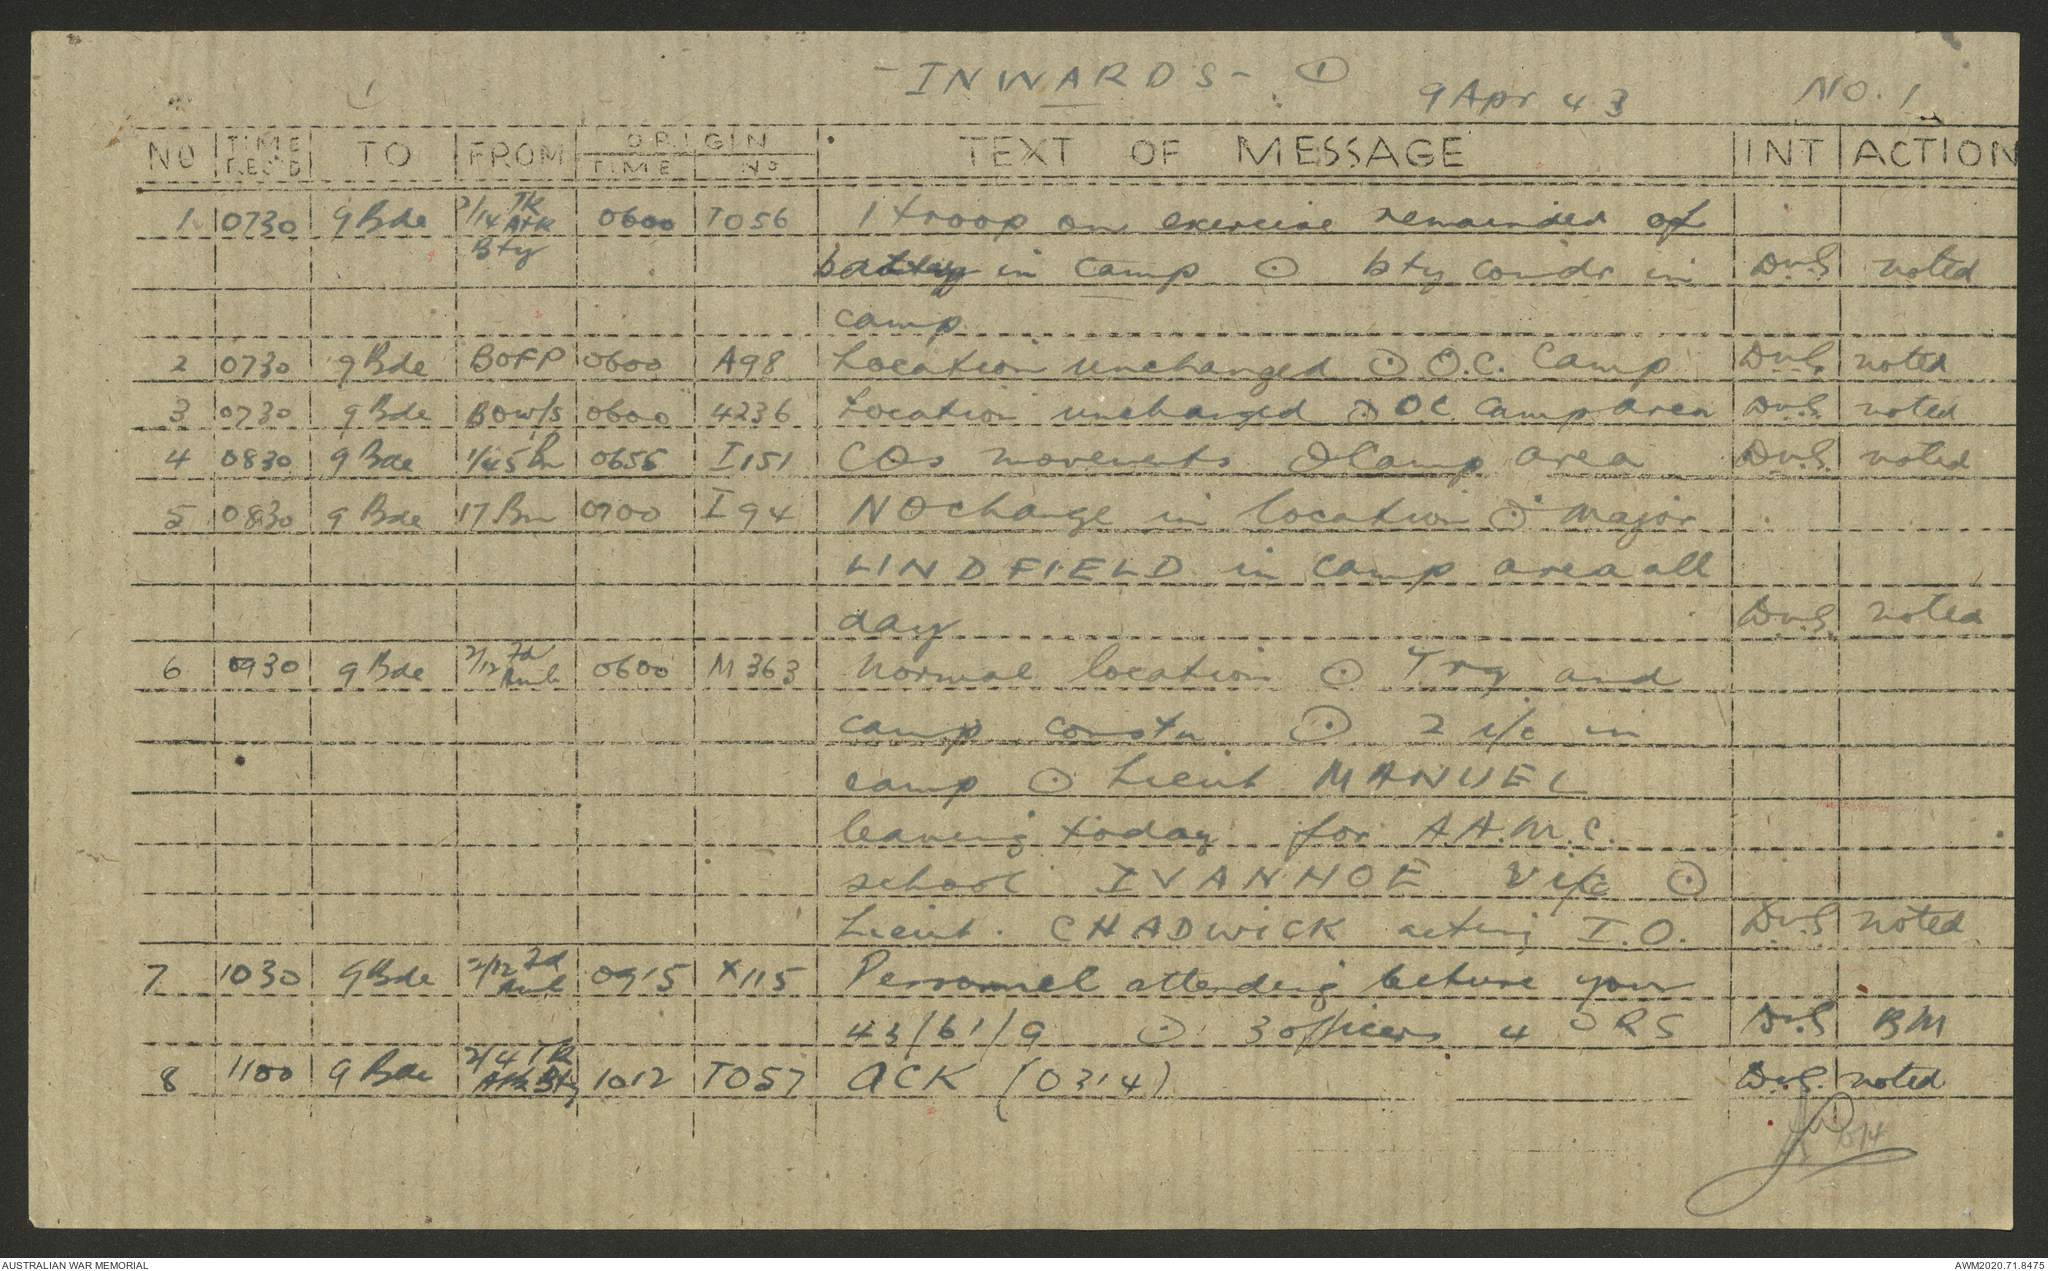 - INWARDS - ①
1
9 Apr 43
NO. 1
NO | TIME REC'D | TO | FROM | ORIGIN TIME | NO | TEXT OF MESSAGE | INT | ACTION
1 | 0730 | 9 Bde | 2/14 TK ATK Bty | 0600 | TO56 | 1 troop on exercise remainder of
battery in camp ⊙ bty comdr in | DvS | noted
camp
2 | 0730 | 9 Bde | BOFP | 0600 | A98 | Location unchanged ⊙ O.C. Camp | DvS. | noted
3 | 0730 | 9 Bde | BOW/S | 0600 | 4236 | Location unchanged ⊙ OC camp area | DvS. | noted
4 | 0830 | 9 Bde | 1/45 Bn | 0655 | I151 | COs movements ⊙ Camp area | DvS. | noted
5 | 0830 | 9 Bde | 17 Bn | 0700 | I94 | NO change in location ⊙ Major
LINDFIELD in camp area all
day | DvS. | noted
6 | 0930 | 9 Bde | 2/12 Fd Amb | 0600 | M363 | Normal location ⊙ Trg and
camp constn ⊙ 2 i/c in
camp ⊙ Lieut MANUEL
leaving today for A.A.M.C.
school IVANHOE Vic ⊙
Lieut. CHADWICK acting I.O. | DvS | noted
7 | 1030 | 9 Bde | 2/12 Fd Amb | 0915 | X115 | Personnel attending lecture your
43/61/9 ⊙ 3 officers 4 ORS | DvS | BM
8 | 1100 | 9 Bde | 2/4 TK ATK Bty | 1012 | TO57 | ACK (0314) | DvS. | noted
AUSTRALIAN WAR MEMORIAL
AWM2020.71.8475